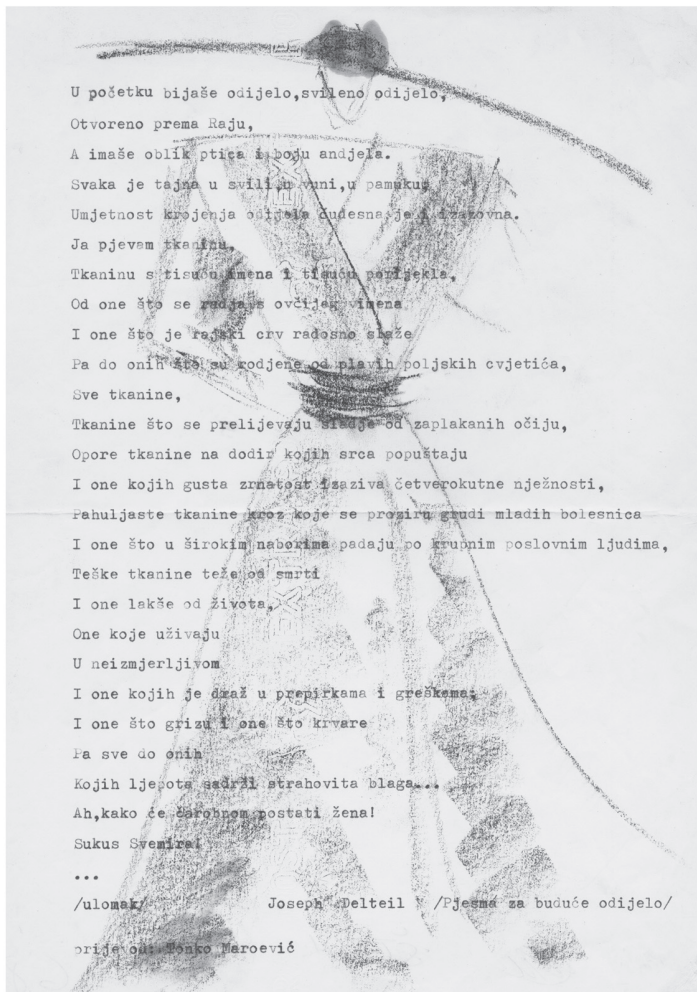 U početku bijaše odijelo,svileno odijelo,
Otvoreno prema Raju,
A imaše oblik ptica i boju andjela.
Svaka je tajna u svili,u vuni,u pamuku;
Umjetnost krojenja odijela čudesna je i izazovna.
Ja pjevam tkaninu,
Tkaninu s tisuću imena i tisuću porijekla,
Od one što se radja s ovčijeg vimena
I one što je rajski crv radosno slaže
Pa do onih što su rodjene od plavih poljskih cvjetića,
Sve tkanine,
Tkanine što se prelijevaju sladje od zaplakanih očiju,
Opore tkanine na dodir kojih srca popuštaju
I one kojih gusta zrnatost izaziva četverokutne nježnosti,
Pahuljaste tkanine kroz koje se proziru grudi mladih bolesnica
I one što u širokim naborima padaju po krupnim poslovnim ljudima,
Teške tkanine teže od smrti
I one lakše od života,
One koje uživaju
U neizmjerljivom
I one kojih je draž u prepirkama i greškama;
I one što grizu i one što krvare
Pa sve do onih
Kojih ljepota sadrži strahovita blaga...
Ah,kako će čarobnom postati žena!
Sukus Svemira!
...
/ulomak/ Joseph Delteil /Pjesma za buduće odijelo/
prijevod: Tonko Maroević